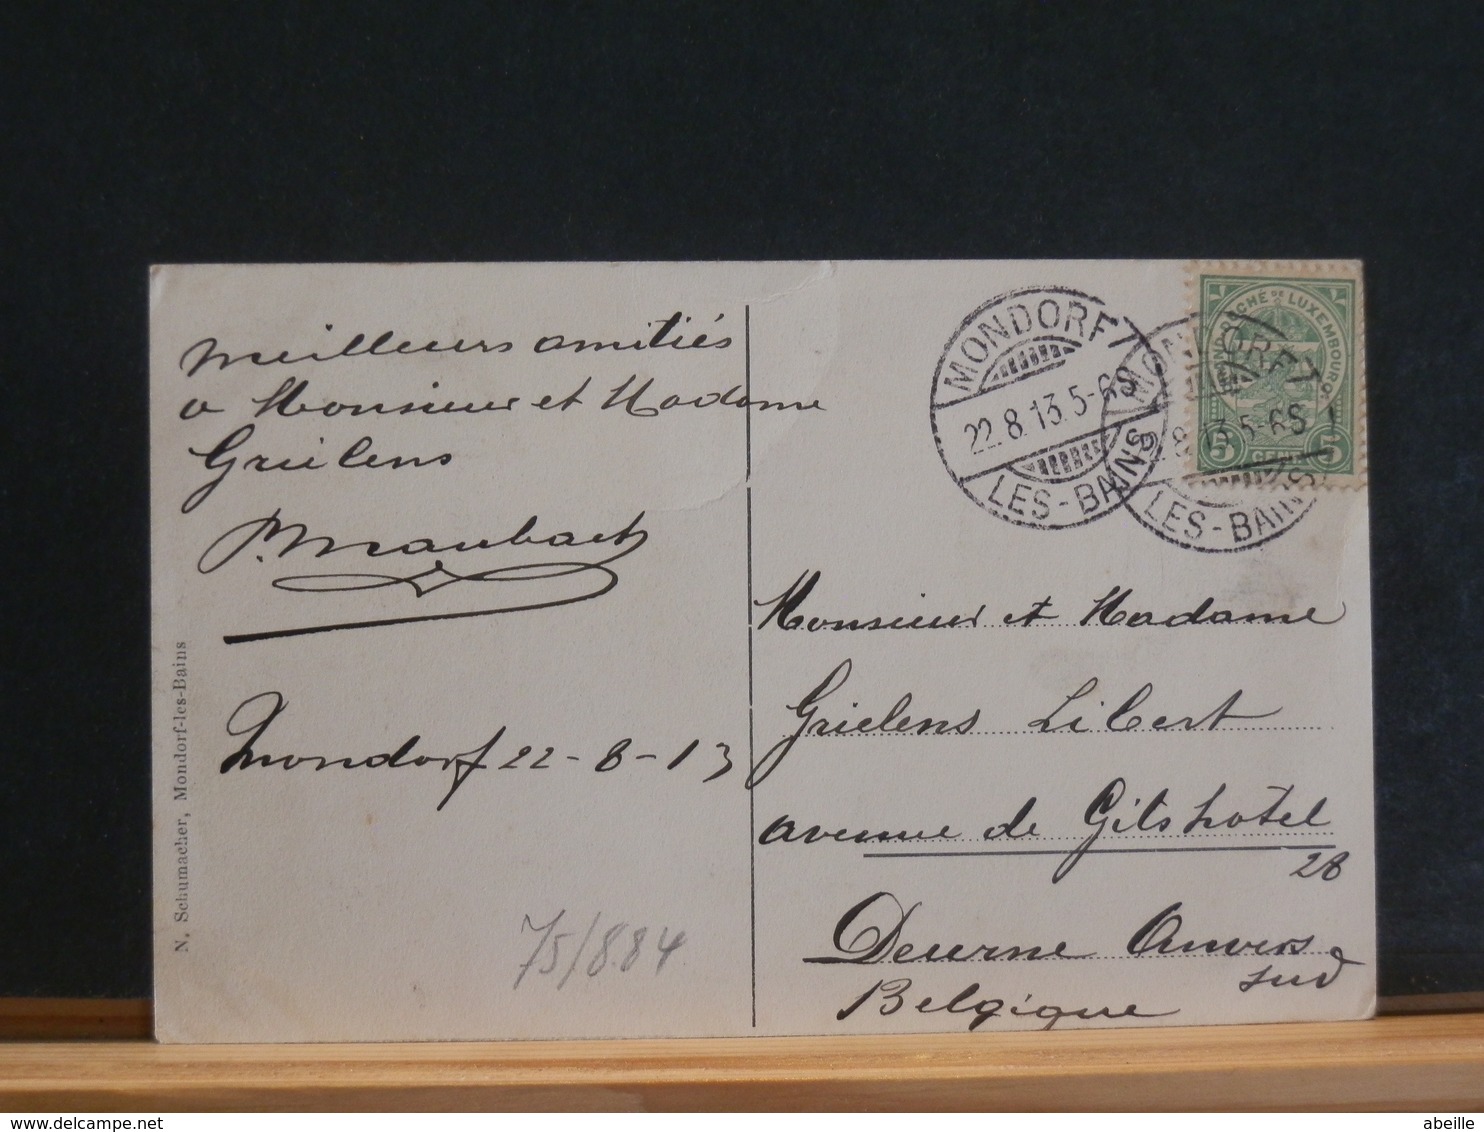 meilleurs amitiés
a Monsieur et Madame
Grielens
P. Maubach
Mondorf 22-8-13
N. Schumacher, Mondorf-les-Bains
75/884
MONDORF
22.8.13.5-6S
LES-BAINS
MONDORF
22.8.13.5-6S
LES-BAINS
GRAND DUCHÉ DE LUXEMBOURG
5 CENT. 5
Monsieur et Madame
Grielens Libert
avenue de Gitshotel
28
Deurne Anvers
sud
Belgique
abeille